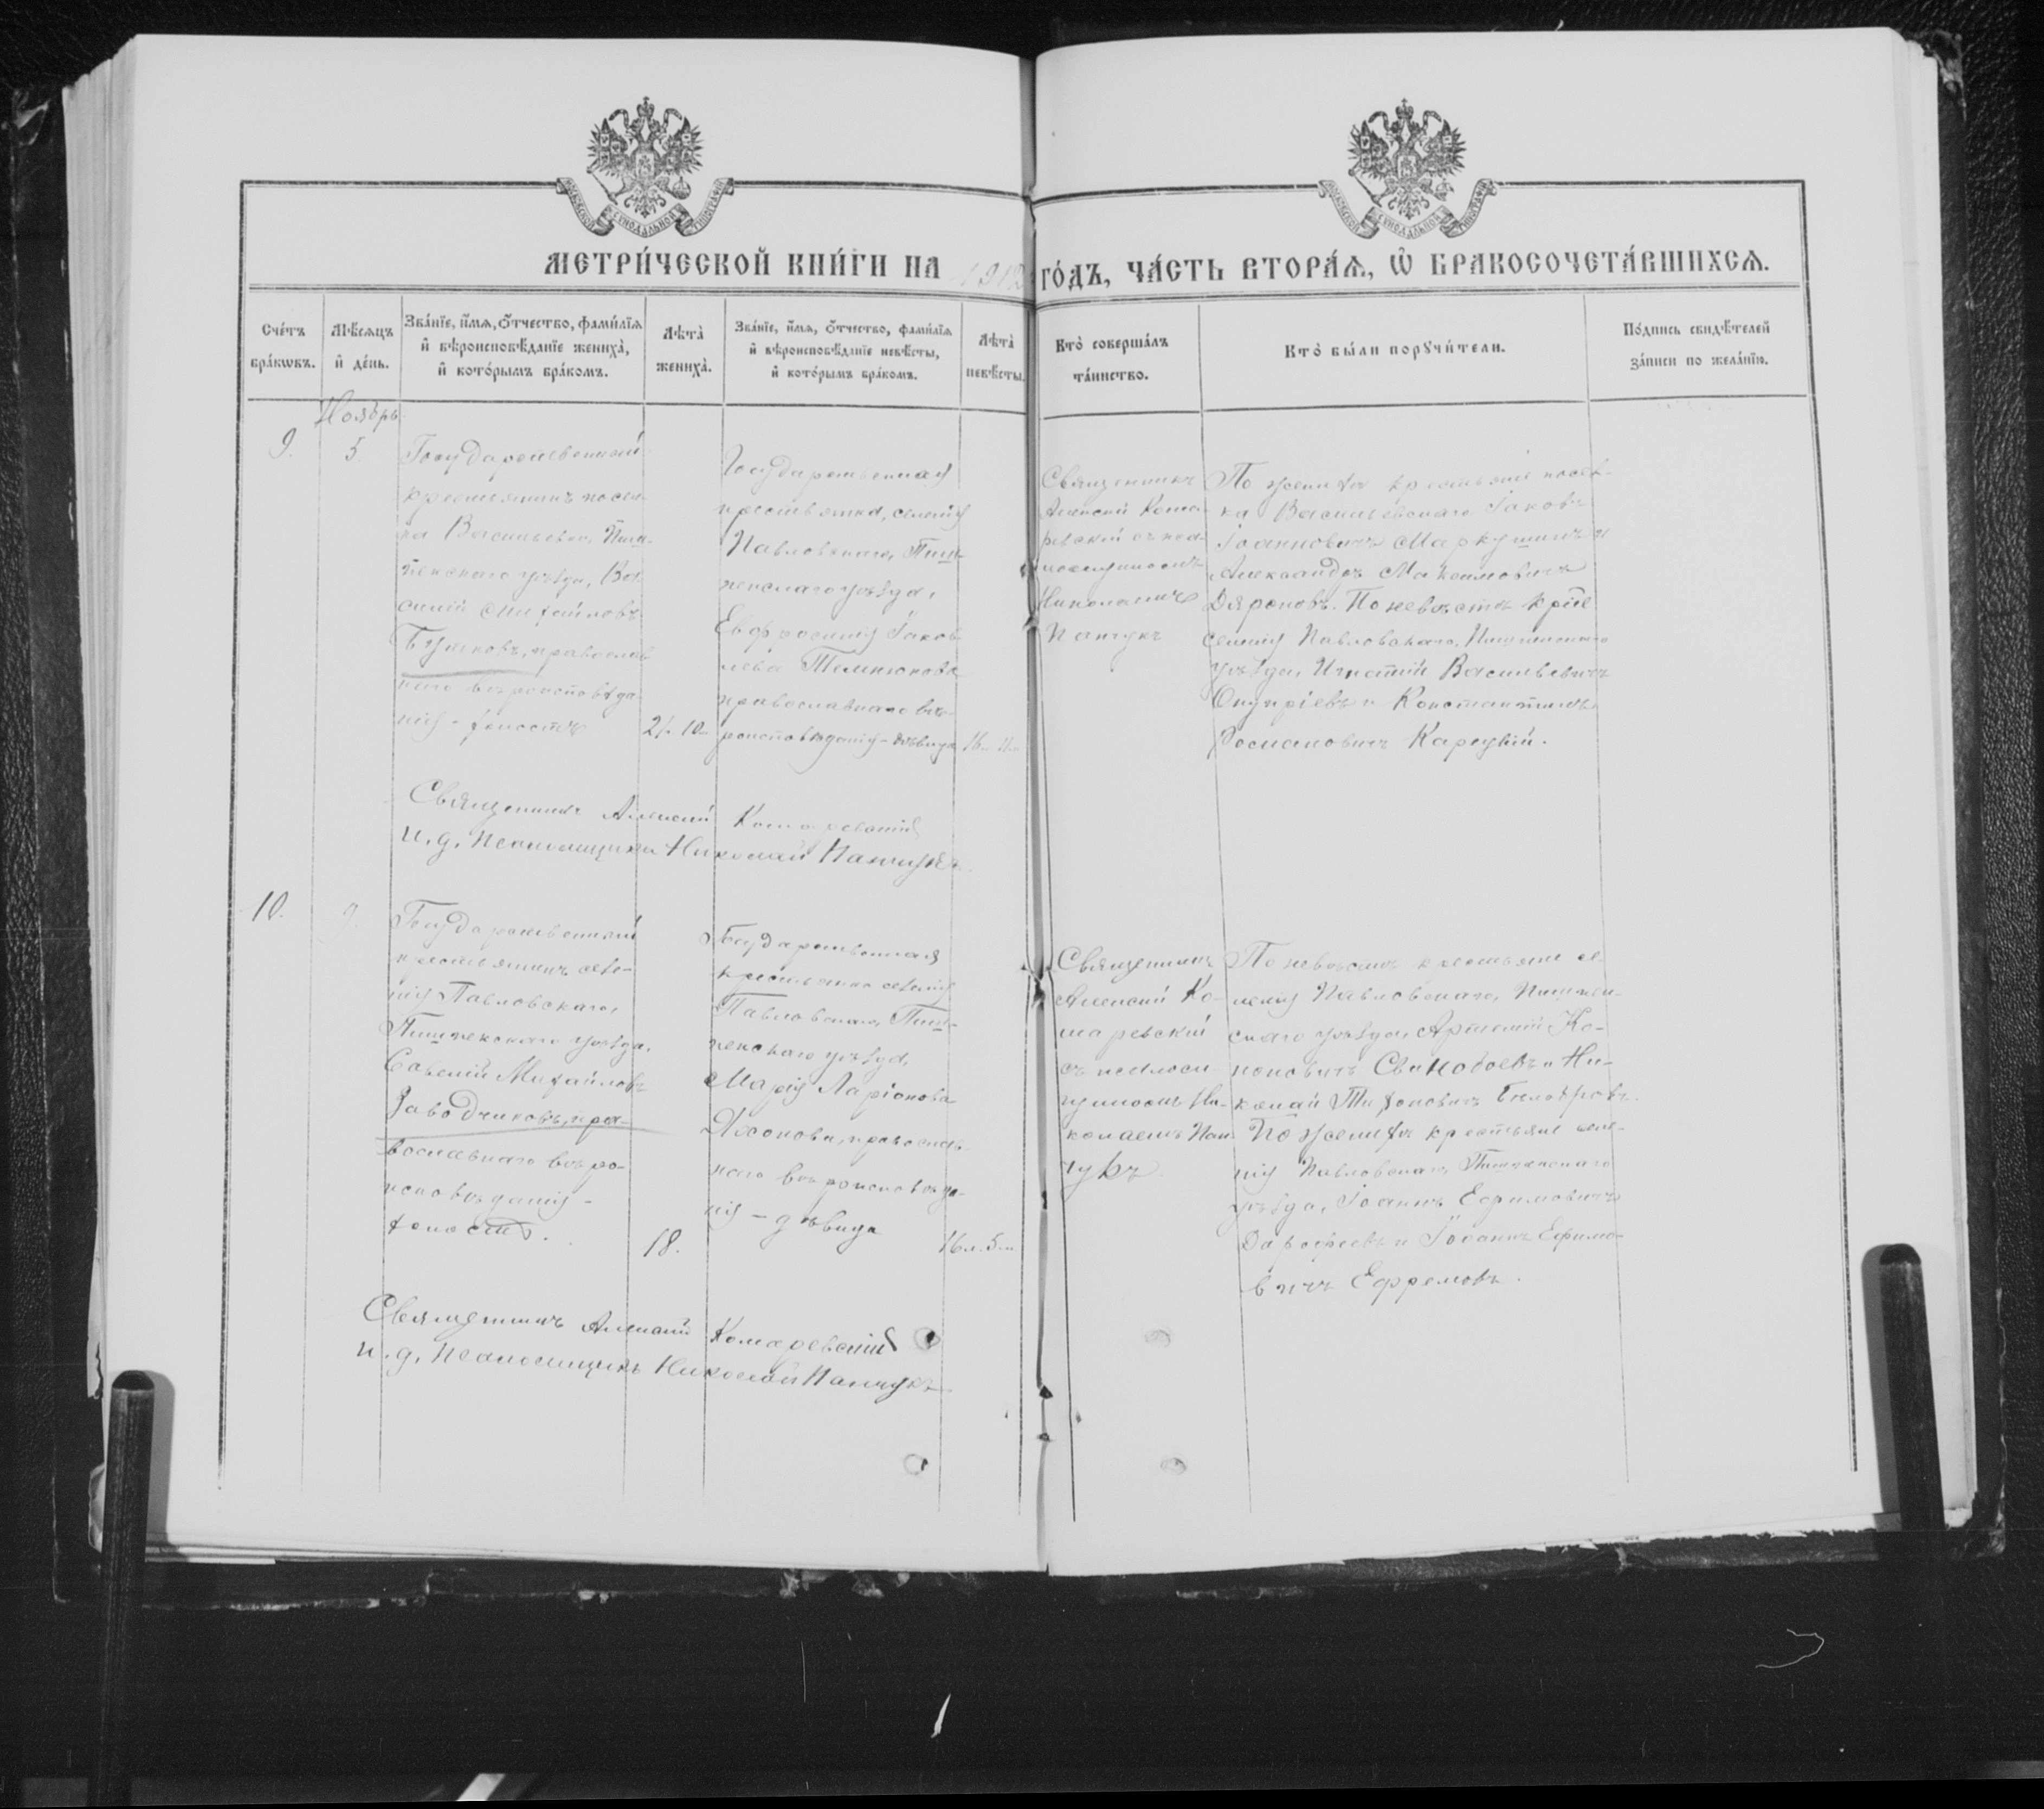 МЕТРИ́ЧЕСКОЙ КНИ́ГИ НА 1912 ГО́ДЪ, ЧА́СТЬ ВТОРА́Ѧ, Ѽ БРАКОСОЧЕТА́ВШИХСѦ.
Сче́тъ
бра́кѡвъ.
Мѣ́сѧцъ
и҆ де́нь.
Зва́нїе, и҆́мѧ, ѻ҆́тчество, фами́лїѧ
и҆ вѣроисповѣ́данїе жениха̀,
и҆ кото́рымъ бра́комъ.
Лѣта̀
жениха̀.
Зва́нїе, и҆́мѧ, ѻ҆́тчество, фами́лїѧ
и҆ вѣроисповѣ́данїе невѣ́сты,
и҆ кото́рымъ бра́комъ.
Лѣта̀
невѣ́сты.
Кто̀ соверша́лъ
та́инство.
Кто̀ бы́ли порꙋчи́тели.
По́дпись свидѣ́телей
за́писи по жела́нїю.
Ноябрь
9.
5.
Государственный
крестьянинъ посел-
ка Васильева, Пиш-
пекскаго уѣзда, Ва-
силій Михайловъ
православ
наго вѣроисповѣда
нія – холостъ
21. 10
Государственная
крестьянка, селенія
Павловскаго, Пиш-
пекскаго уѣзда,
Евфросинія Іаков-
лева
православнаго вѣ-
роисповѣданія – дѣвица
16
Священникъ
Алексій Кома-
ревскій съ пса-
ломщикомъ
Николаемъ
Панчукъ
По женихѣ крестьяне посел-
ка Васильевскаго Іаковъ
Іоанновичъ Маркушинъ и
Александръ Максимовичъ
По невѣстѣ крест.
селенія Павловскаго, Пишпекскаго
уѣзда, Игнатій Васильевичъ
Онуфріевъ и Константинъ
Романовичъ Карецкій.
Священникъ Алексій Комаревскій
и. д. Псаломщика Николай Панчукъ
10.
9.
Государственный
крестьянинъ селе-
нія Павловскаго,
Пишпекскаго уѣзда,
Савелій Михайловъ
Заводчиковъ, пра-
вославнаго вѣро-
исповѣданія –
холостъ.
18.
Государственная
крестьянка селенія
Павловскаго, Пиш-
пекскаго уѣзда,
Марія Ларіонова
православ-
наго вѣроисповѣда-
нія – дѣвица
16 л. 5 м.
Священникъ
Алексій Ко-
маревскій
Ни-
колаемъ Пан
чукъ
По невѣстѣ крестьяне се-
ленія Павловскаго, Пишпек-
скаго уѣзда, Артемій Ко-
ноновичъ Свинобоевъ и Ни-
колай Тихоновичъ
По женихѣ крестьяне селе-
нія Павловскаго, Пишпекскаго
уѣзда, Іоаннъ Ефимовичъ
Дарофеевъ и Іоаннъ Ефимо-
вичъ Ефремовъ.
Священникъ Алексій Комаревскій
и. д. Псаломщикъ Николай Панчукъ